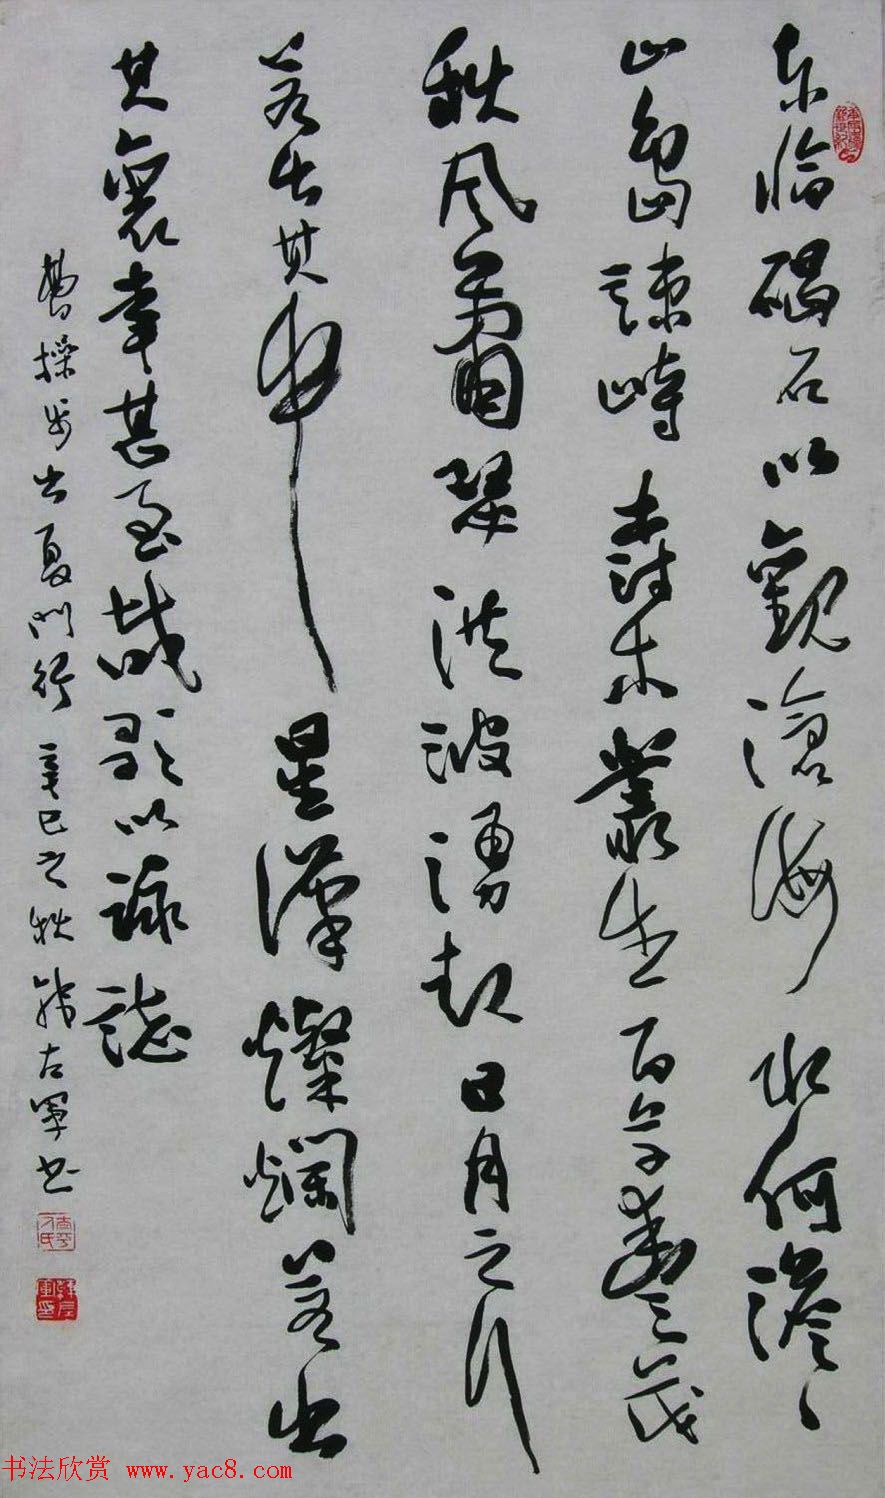 东临碣石以觀滄海水何澹々
山島竦峙樹木叢生百草豐茂
秋风蕭瑟洪波湧起日月之行
若出其中星漢燦爛若出
其裏幸甚至哉歌以詠誌
曹操步出夏门行 辛巳之秋 左军书
书法欣赏 www.yac8.com